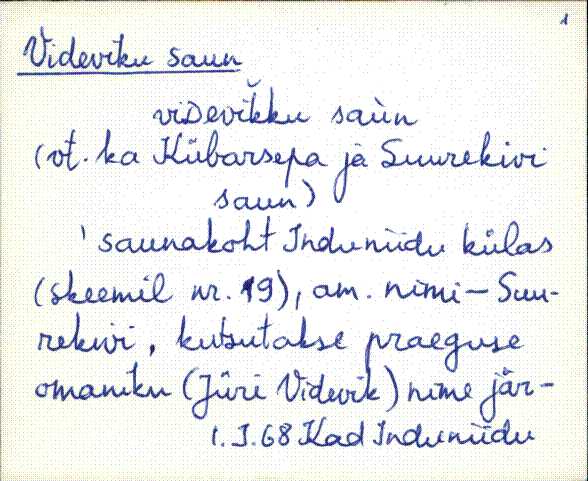 1
Videviku saun
viᴅevik̆ku saùn
(vt. ka Kübarsepa ja Suurekivi
saun)
' saunakoht Induniidu külas
(skeemil nr. 19), am. nimi – Suu-
rekivi, kutsutakse praeguse
omaniku (Jüri Videvik) nime jär-
1.I.68 Kad Induniidu